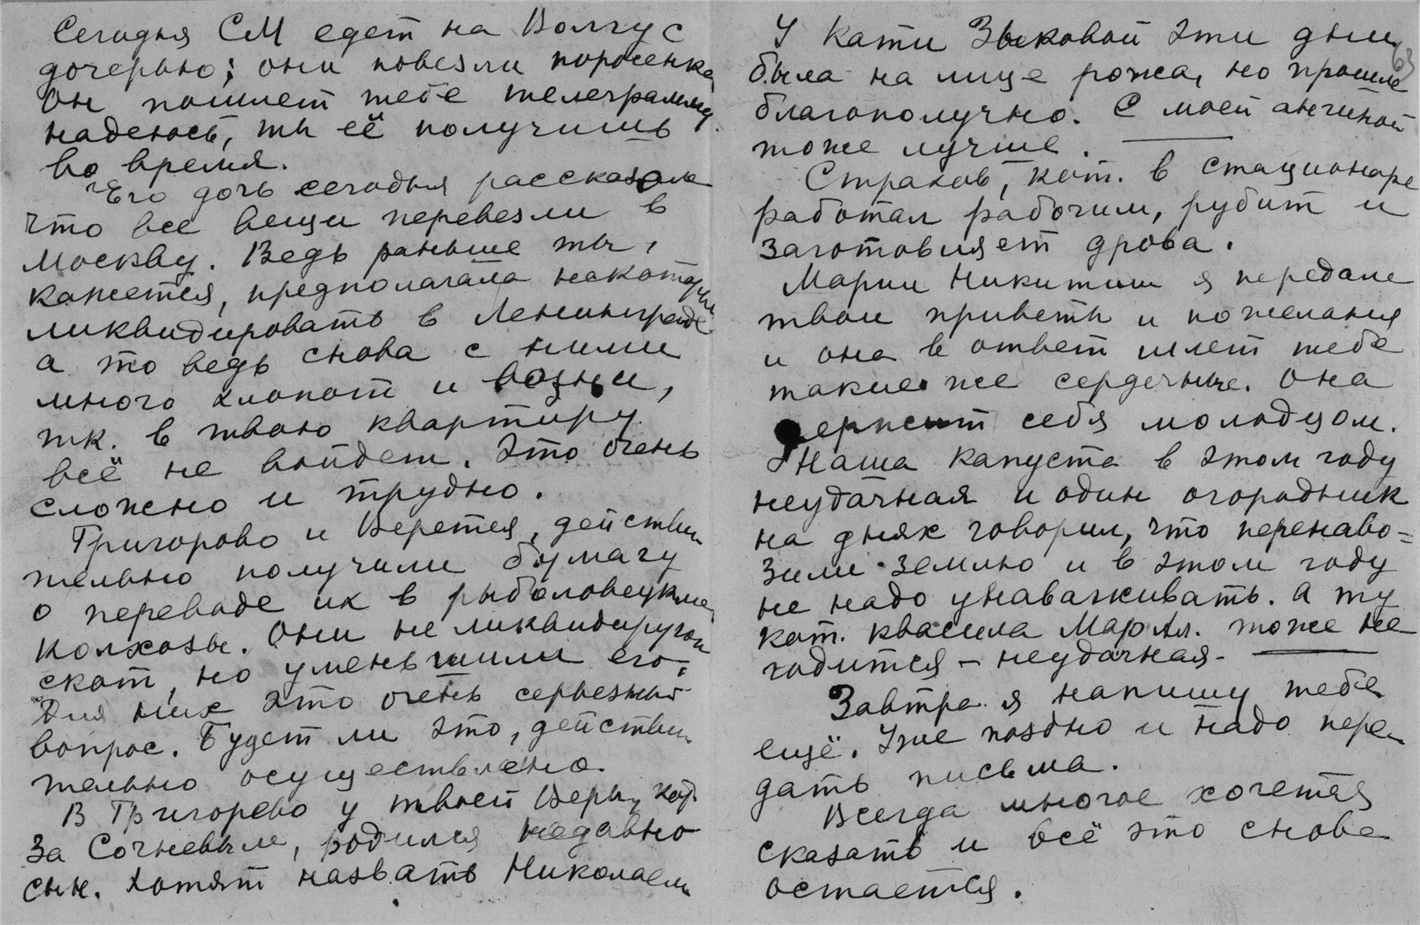 Сегодня СМ едет на Волгу с
дочерью; они повезли поросенка
он пошлет тебе телеграмму
надеюсь, ты её получишь
во время.
Его дочь сегодня рассказала
что все вещи перевезли в
Москву. Ведь раньше ты,
кажется, предполагала некоторые
ликвидировать в Ленинграде
а то ведь снова с ними
много хлопот и возни,
тк. в твою квартиру
всё не войдет. Это очень
сложно и трудно.
Григорово и Веретея, действи
тельно получили бумагу
о переводе их в рыболовецкие
колхозы. Они не ликвидируют
скот, но уменьшили его.
Для них это очень серьезный
вопрос. Будет ли это, действи
тельно осуществлено.
В Григорево у твоей Веры, кот.
за Сочневым, родился недавно
сын. Хотят назвать Николаем
63
У Кати Зыковой эти дни
была на лице рожа, но прошла
благополучно. С моей ангиной
тоже лучше.
Страхов, кот. в стационаре
работал рабочим, рубит и
заготовляет дрова.
Марии Никитиш я передала
твои приветы и пожелания
и она в ответ шлет тебе
такие же сердечные. Она
держит себя молодцом.
Наша капуста в этом году
неудачная и один огородник
на днях говорил, что перенаво=
зили землю и в этом году
не надо унаваживать. А ту
кот. квасила Мар Ал. тоже не
годится – неудачная –
Завтра я напишу тебе
ещё. Уже поздно и надо пере
дать письма.
Всегда многое хочется
сказать и всё это снова
остается.